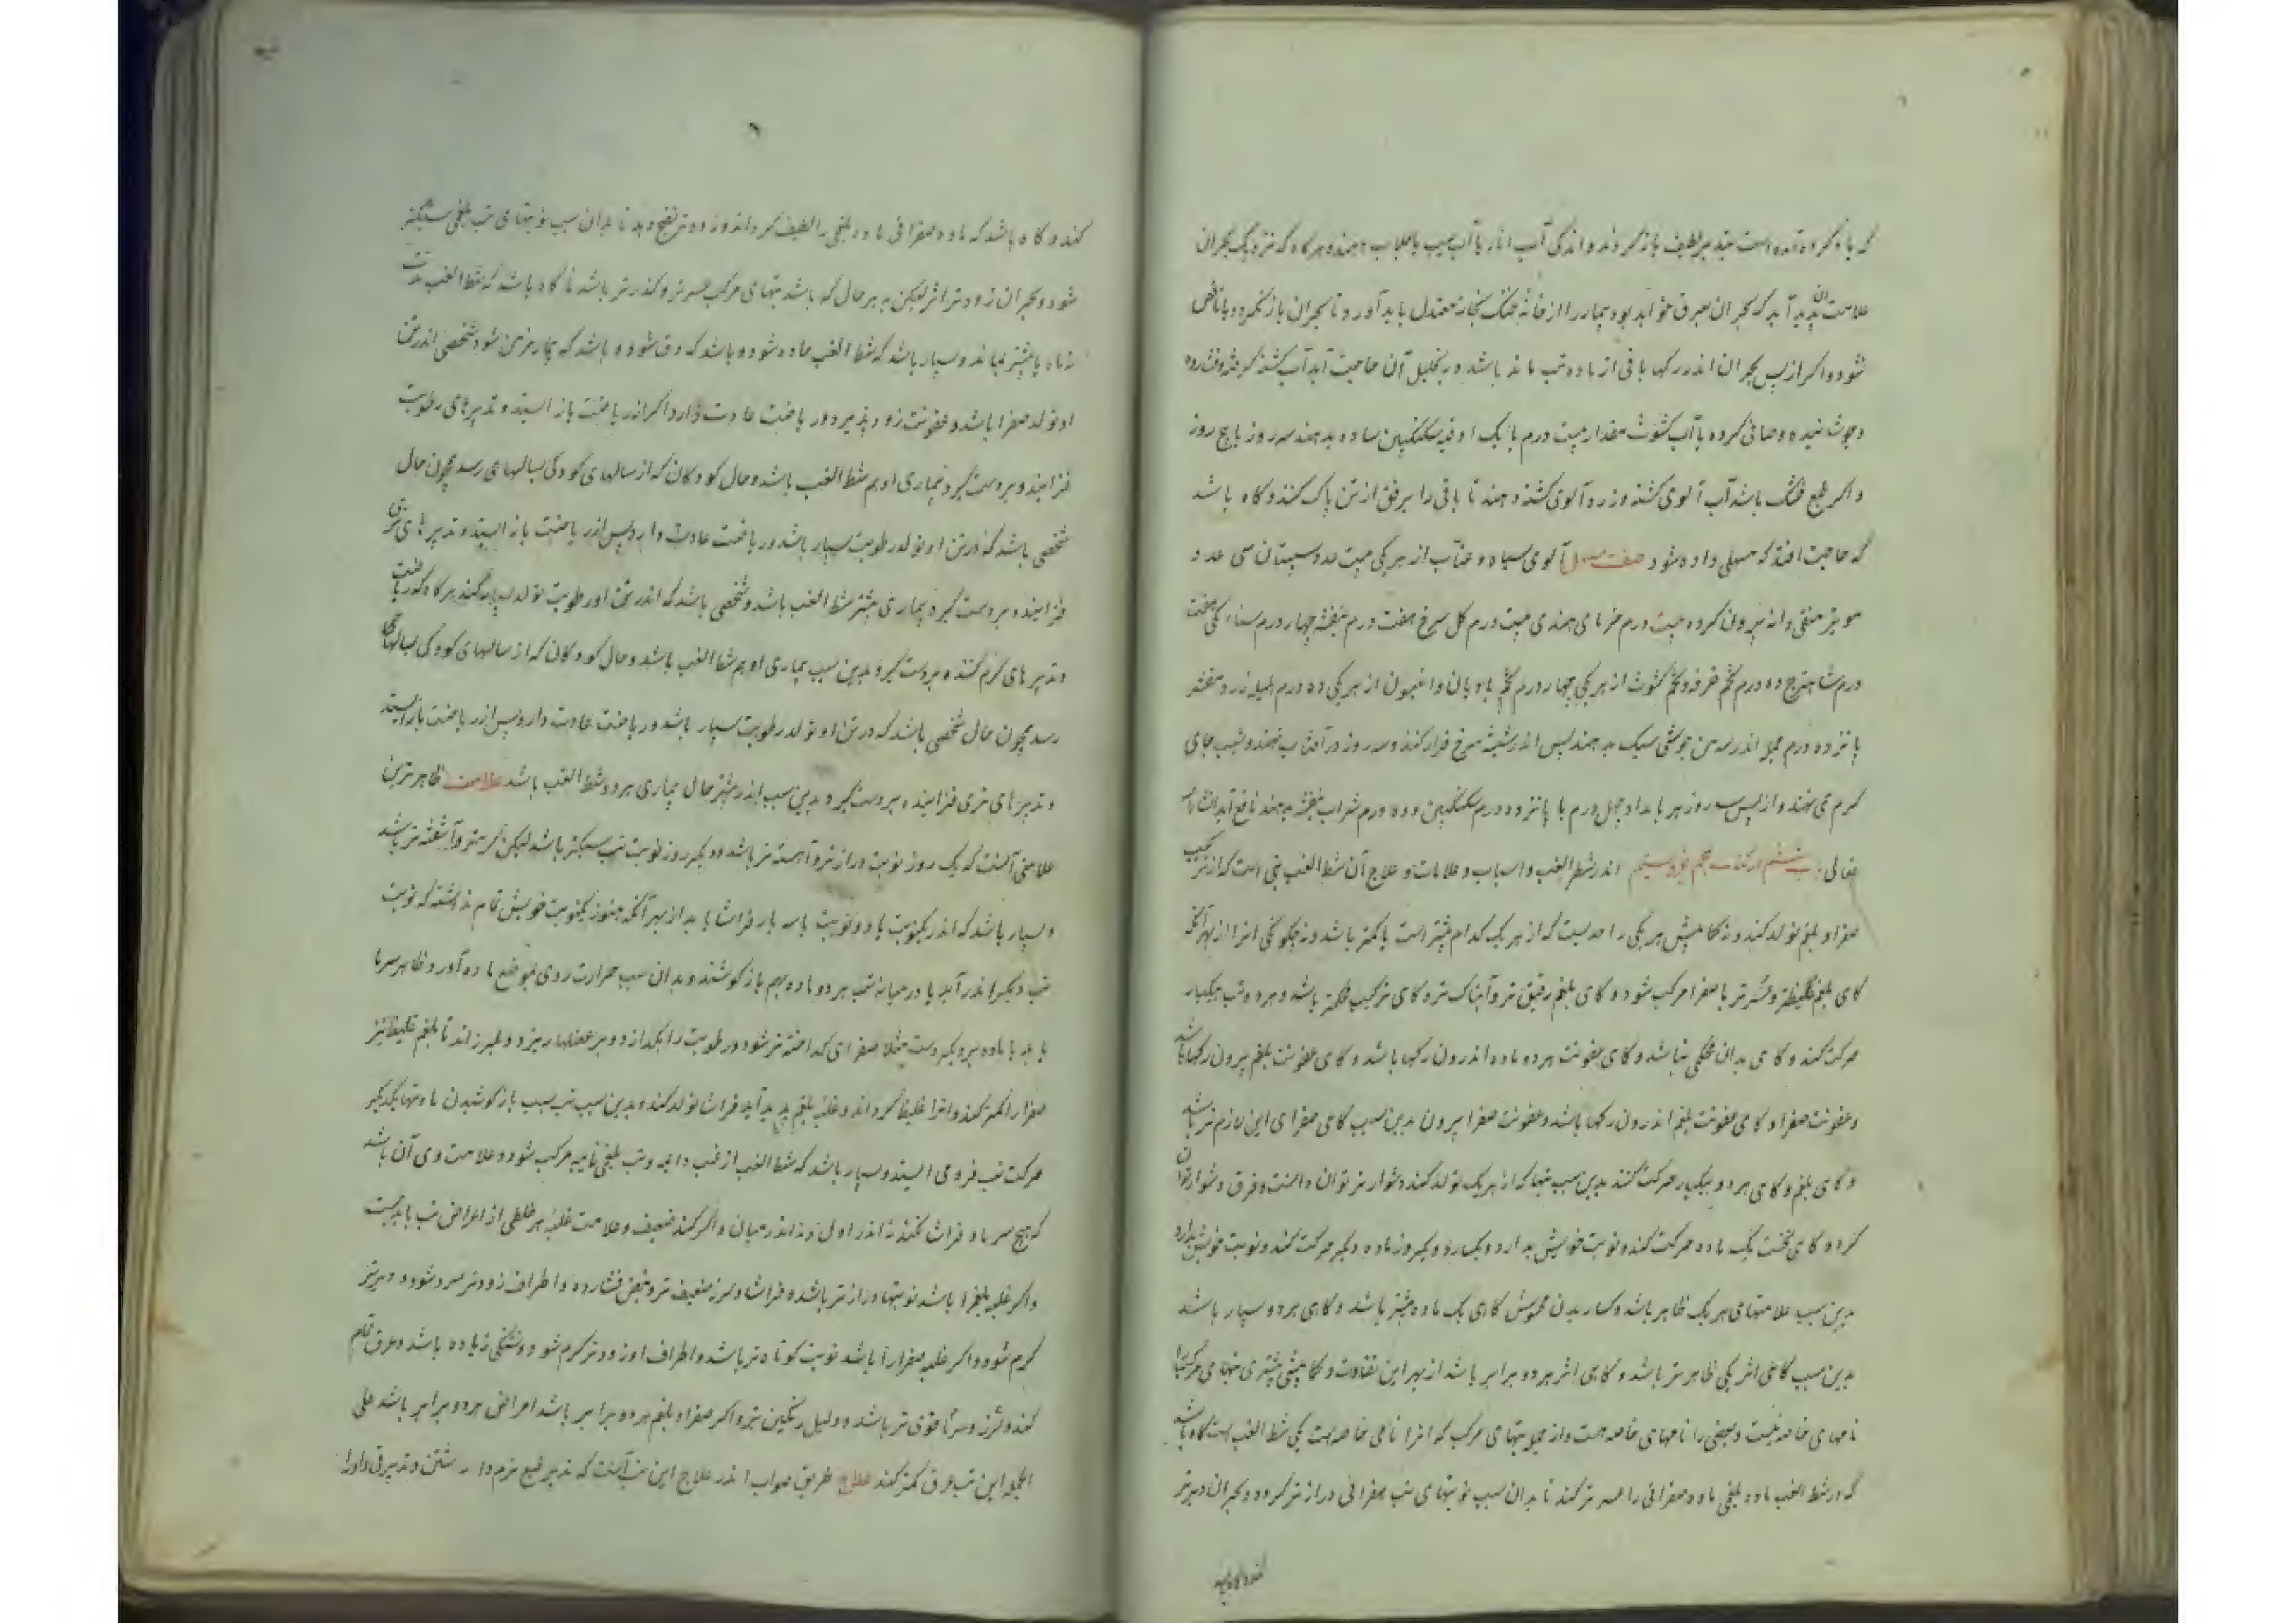 که یاد کرده آمده است بتدبیر لطیف باز گردند و اندکی آب انار یا آب سیب یا جلاب دهند و هرگاه که نزدیک بحران
علامت آن پدید آید که بحران بعرق خواهد بود بیمار را از خانهٔ خنک بخانهٔ معتدل باید آورد و تا بحران باز نگردد یا ناقص
نشود و اگر از پس بحران اندر رگها باقی از ماده تب مانده باشد و بتحلیل آن حاجت آید آب کشنه کوفته و فشارده
و جوشانیده و صافی کرده با آب کشوث مقدار بیست درم با یک اوقیه سکنگبین ساده بدهند سه روز یا پنج روز
و اگر طبع خشک باشد آب آلوی کشته و زرد آلوی کشته دهند تا باقی را برفق از تن پاک کند و گاه باشد
که حاجت افتد که مسهلی داده شود صفت مسهل آلوی سیاه و عناب از هر یکی بیست عدد سپستان سی عدد
مویز منقی دانه بیرون کرده بیست درم خرمای هندی بیست درم گل سرخ هفت درم بنفشه چهار درم سناء مکی هفت
درم شاهترج ده درم تخم خرفه و تخم کشوث از هر یکی چهار درم تخم بادیان و افتیمون از هر یکی ده درم هلیله زرد مقشر
پانزده درم جمله اندر سه من جوشی سبک بدهند پس اندر شیشه سرخ فراز کنند و سه روز در آفتاب نهند و شب جای
گرم می نهند و از پس سه روز هر بامداد چهل درم با پانزده درم سکنگبین و ده درم شراب بنفشه بدهند نافع آید انشاءالله
تعالی باب ششم از کتاب پنجم اندر شطر الغب و اسباب و علامات و علاج آن شطر الغب تبی است که از ترکیب
صفرا و بلغم تولد کند و نه کما بیش هر یکی را حدیست که از هر یک کدام بیشتر است یا کمتر باشد و نه چگونگی انرا از بهر آنکه
گاهی بلغم غلیظتر و عسرتر با صفرا مرکب شود و گاهی بلغم رقیق تر و آبناک تر و گاهی ترکیب محکمتر باشد و هر دو تب بیکبار
حرکت کند و گاهی بدان محکمی نباشد و گاهی عفونت هر دو ماده اندرون رگها باشد و گاهی عفونت بلغم بیرون رگها باشد
و عفونت صفرا و گاهی عفونت بلغم اندرون رگها باشد و عفونت صفرا بیرون بدین سبب گاهی صفرای این لازم تر باشد
و گاهی بلغم و گاهی هر دو بیکبار حرکت کنند بدین سبب تبها که از هر یک تولد کند دشوار تر توان دانست و فرق دشوار توان
کرد و گاهی نخست یک ماده حرکت کند و نوبت خویش بدارد و یکبار و دیگر روز ماده دیگر حرکت کند و نوبت خویش بدارد
بدین سبب علامتهای هر یک ظاهر باشد و گاهی یک ماده بیشتر باشد و گاهی هر دو بسیار باشد
بدین سبب گاهی اثر یکی ظاهر تر باشد و گاهی اثر هر دو برابر باشد از بهر این تفاوت و کما بیشی بیشتری تبهای مرکب را
نامهای خاصه نیست و بعضی را نامهای خاصه هست و از جمله تبهای مرکب که انرا نامی خاصه است یکی شطر الغب است گاه باشد
که در شطر الغب ماده بلغمی ماده صفرائی را عسرتر کند تا بدان سبب نوبتهای تب صفرائی درازتر گردد و بحران دیرتر
کند و گاه باشد
٦
کند و گاه باشد که ماده صفرائی ماده بلغمی را لطیف گرداند و زودتر نضج دهد تا بدان سبب نوبتهای تب بلغمی سبکتر
شود و بحران زودتر افتد لیکن بهر حال که باشد تبهای مرکب عسرتر و کندرتر باشد تا گاه باشد که شطر الغب مدت
نه ماه یا بیشتر بماند و بسیار باشد که شطر الغب حاده شود و باشد که دق شود و باشد که بیمار مزمن شود شخصی اندر تن
او تولد صفرا باشد و عفونت زود پذیرد و ریاضت عادت دارد اگر از ریاضت باز ایستد و تدبیرهای رطوبت
فزاینده بر دست گیرد بیماری او هم شطر الغب باشد و حال کودکان که از سالهای کودکی بسالهای رسد همچون حال
شخصی باشد که در تن او تولد رطوبت بسیار باشد و ریاضت عادت دارد پس از ریاضت باز ایستد و تدبیرهای تری
فزاینده بر دست گیرد بیماری بیشتر شطر الغب باشد و شخصی باشد که اندر تن او رطوبت تولد بسیار کند هرگاه که ریاضت
و تدبیرهای گرم کننده بر دست گیرد بدین سبب بیماری او هم شطر الغب باشد و حال کودکان که از سالهای کودکی بسالهای
رسد همچون حال شخصی باشد که در تن او تولد رطوبت بسیار باشد و ریاضت عادت دارد پس از ریاضت باز ایستد
و تدبیرهای تری فزاینده بر دست گیرد بدین سبب اندر بیشتر حال بیماری هر دو شطر الغب باشد علامت ظاهرترین
علامتی آنست که یک روز نوبت درازتر و آهسته تر باشد و دیگر روز نوبت تب سبکتر باشد لیکن گرمتر و آشفته تر باشد
و بسیار باشد که اندر یک نوبت یا دو نوبت یا سه بار فراشا باید از بهر آنکه هنوز یک نوبت خویش تمام نداشته که نوبت
تب دیگر اندر آید یا در میانه تب هر دو ماده بهم باز کوشند و بدان سبب حرارت روی بموضع ماده آورد و ظاهر سرما
یابد یا ماده بر دیگر دست مثلا صفرای گداخته تر شود و رطوبت را بگدازد و بر عضلها ریزد و بلرزاند تا بلغم غلیظ نیز
صفرا را کمتر کند و انرا غلیظ گرداند و غلبه بلغم پدید آید فراشا تولد کند و بدین سبب تب بسبب باز کوشیدن ماده تبها یکدیگر
حرکت تب فرو می ایستد و بسیار باشد که شطر الغب از غب دایمه و تب بلغمی نایبه مرکب شود و علامت وی آن باشد
که هیچ سرما و فراشا نکند نه اندر اول و نه اندر میان و اگر کند ضعیف و علامت غلبه هر خلطی از اعراض تب باید جست
و اگر غلبه بلغم را باشد نوبتها درازتر باشد و فراشا و لرز ضعیف تر و نبض فشارده و اطراف زودتر سرد شود و دیرتر
گرم شود و اگر غلبه صفرا را باشد نوبت کوتاه تر باشد و اطراف او زودتر گرم شود و تشنگی زیاده باشد و عرق تمام
کند و لرز و سرما قوی تر باشد و دلیل رنگین تر و اگر صفرا و بلغم هر دو برابر باشد اعراض هر دو برابر باشد علی
الجمله این تب عرق کمتر کند علاج طریق صواب اندر علاج این تب آنست که تدبیر طبع نرم داشتن و تدبیر قی